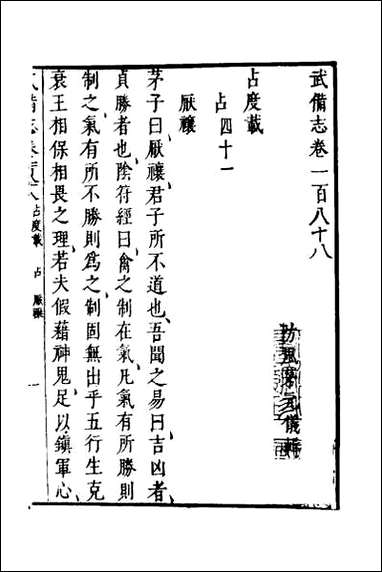 武備志卷一百八十八
防風茅元儀輯
占度載
占四十一
厭禳
茅子曰厭禳君子所不道也吾聞之易曰吉凶者
貞勝者也陰符經曰禽之制在氣凡氣有所勝則
制之氣有所不勝則為之制固無出乎五行生克
衰王相保相畏之理若夫假藉神鬼足以鎮軍心
武備志卷百八十八 占度載 占 厭禳 一